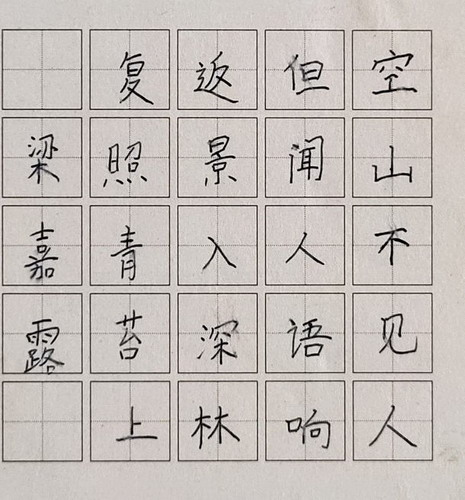 空山不见人
但闻人语响
返景入深林
复照青苔上
梁嘉露